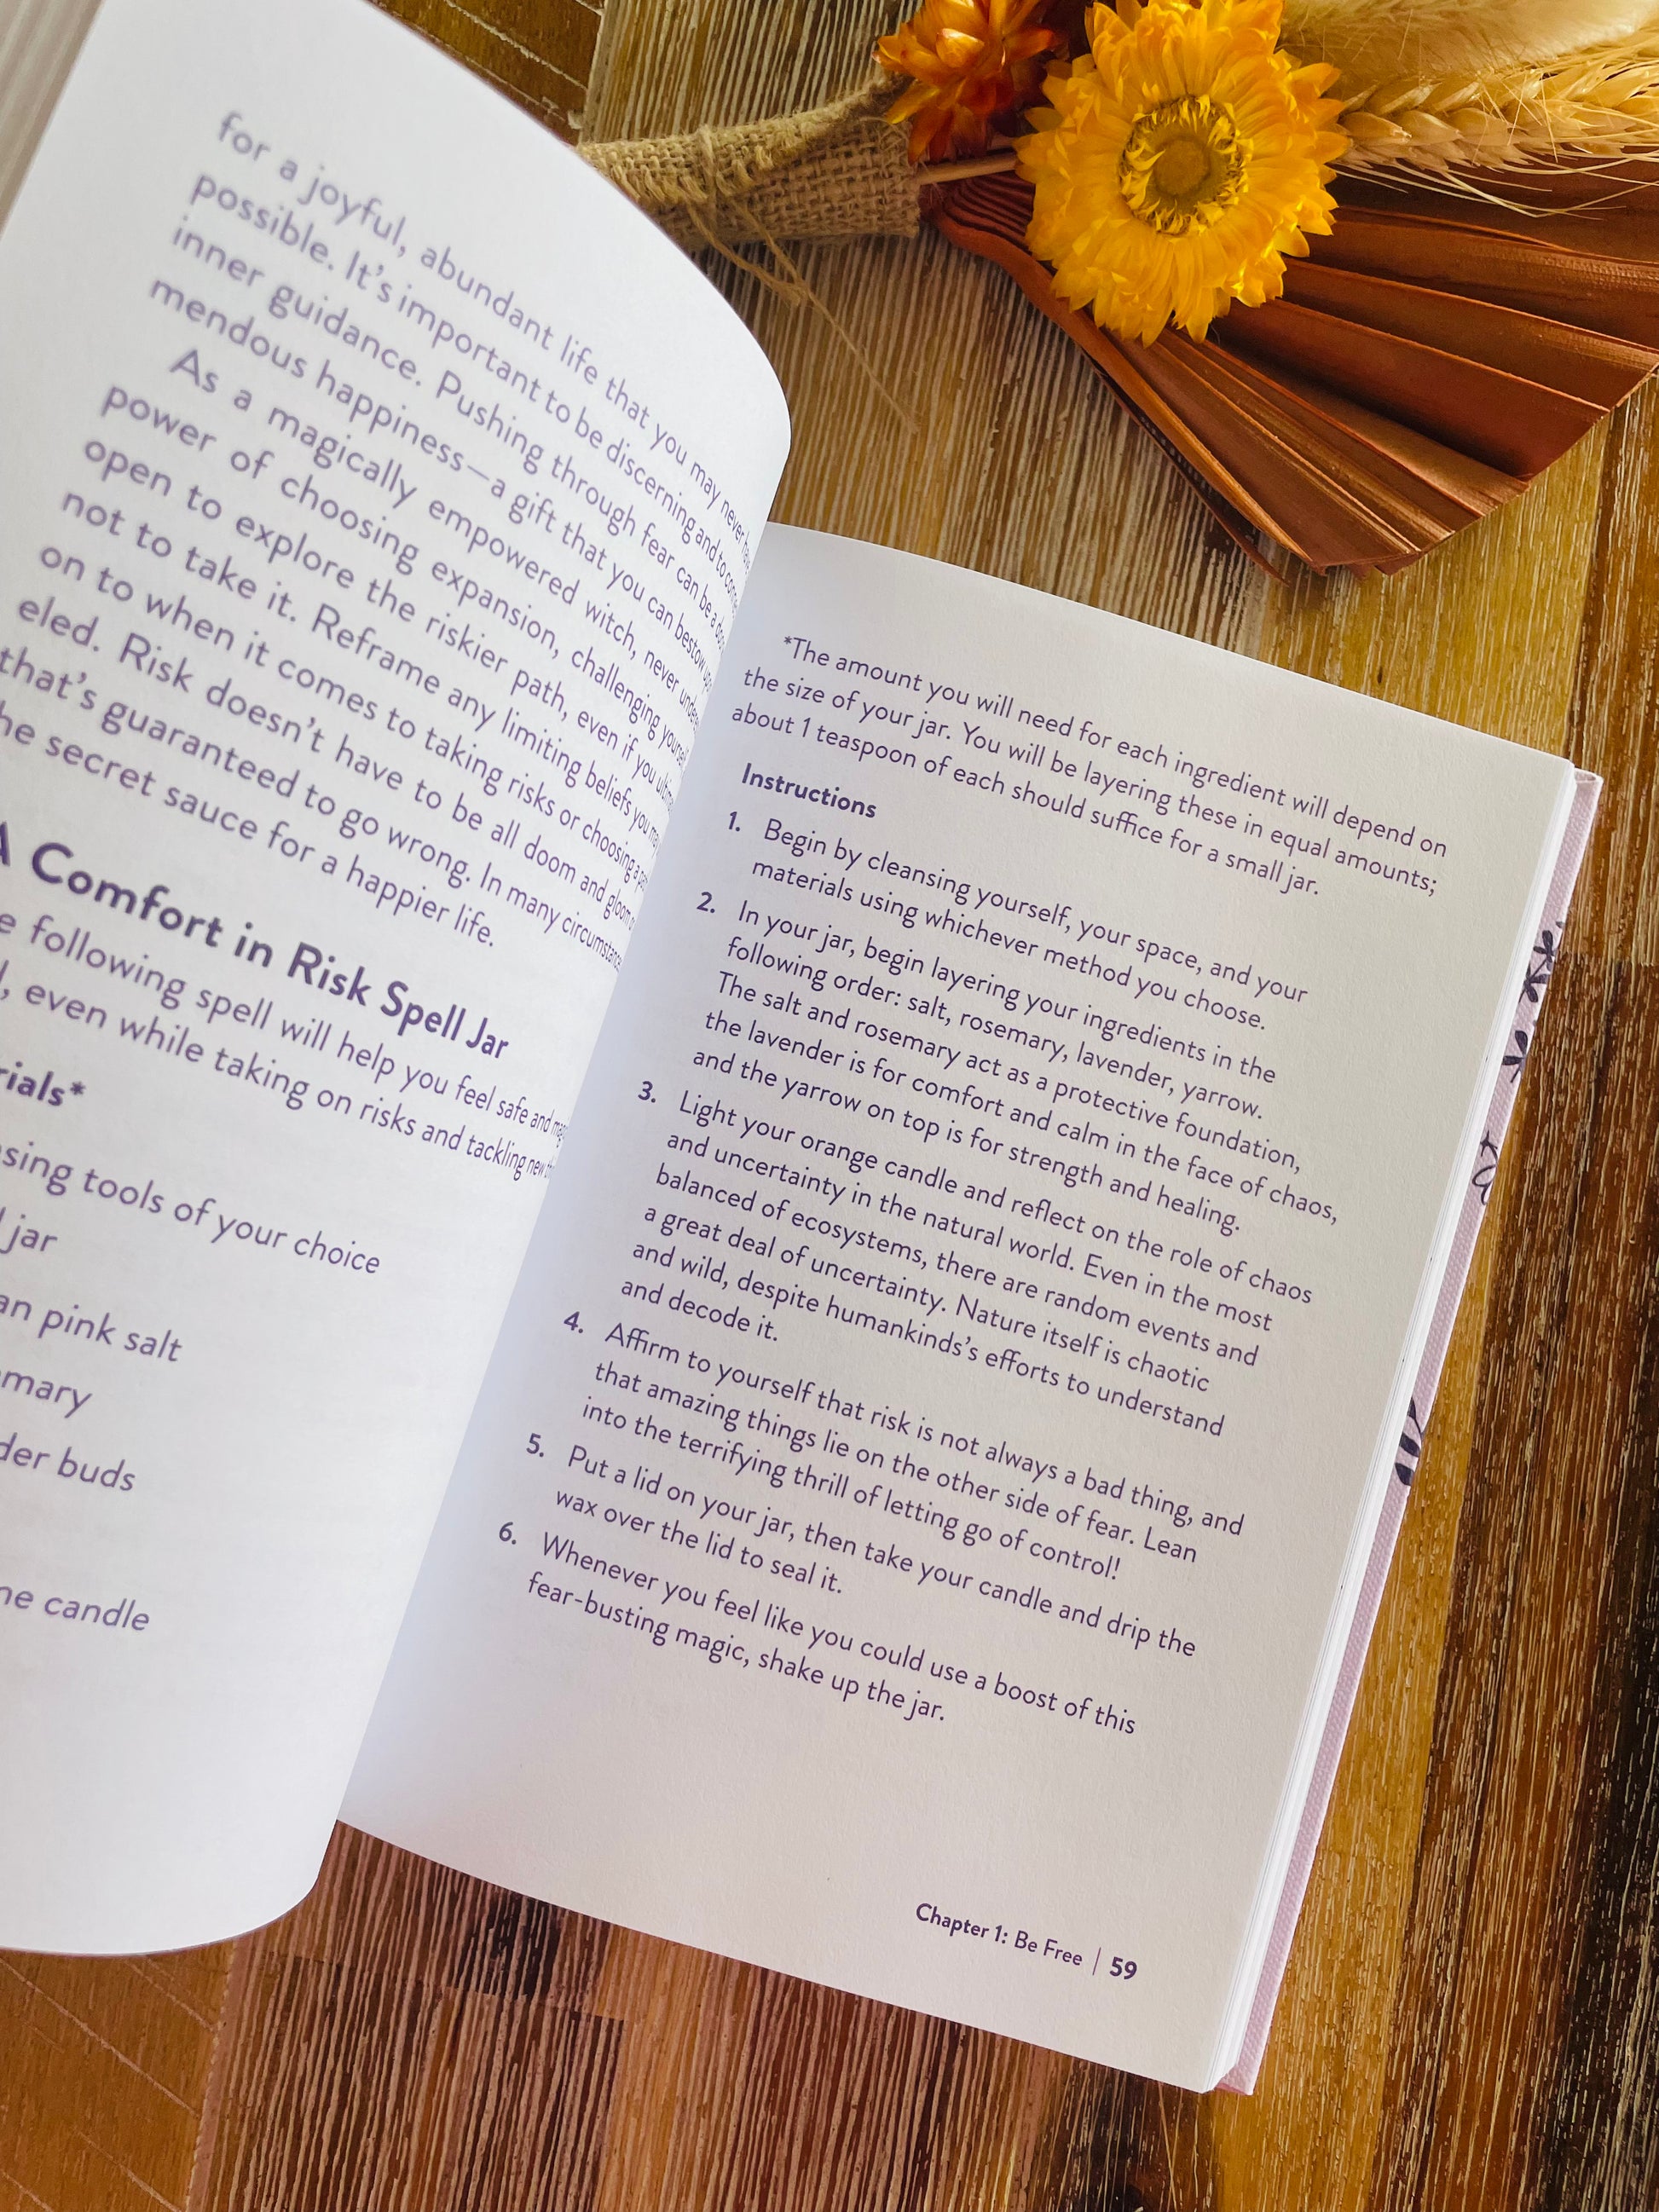 for a joyful, abundant life that you may never have
possible. It's important to be discerning and to
inner guidance. Pushing through fear can be a
mendous happiness—a gift that you can bestow
As a magically empowered witch, never
power of choosing expansion, challenging yourself
open to explore the riskier path, even if you
not to take it. Reframe any limiting beliefs you may
on to when it comes to taking risks or choosing a
eled. Risk doesn't have to be all doom and gloom
that's guaranteed to go wrong. In many
he secret sauce for a happier life.
A Comfort in Risk Spell Jar
e following spell will help you feel safe and
d, even while taking on risks and tackling new
rials*
nsing tools of your choice
l jar
an pink salt
mary
der buds
ne candle
*The amount you will need for each ingredient will depend on
the size of your jar. You will be layering these in equal amounts;
about 1 teaspoon of each should suffice for a small jar.
Instructions
1. Begin by cleansing yourself, your space, and your
materials using whichever method you choose.
2. In your jar, begin layering your ingredients in the
following order: salt, rosemary, lavender, yarrow.
The salt and rosemary act as a protective foundation,
the lavender is for comfort and calm in the face of chaos,
and the yarrow on top is for strength and healing.
3. Light your orange candle and reflect on the role of chaos
and uncertainty in the natural world. Even in the most
balanced of ecosystems, there are random events and
a great deal of uncertainty. Nature itself is chaotic
and wild, despite humankinds's efforts to understand
and decode it.
4. Affirm to yourself that risk is not always a bad thing, and
that amazing things lie on the other side of fear. Lean
into the terrifying thrill of letting go of control!
5. Put a lid on your jar, then take your candle and drip the
wax over the lid to seal it.
6. Whenever you feel like you could use a boost of this
fear-busting magic, shake up the jar.
Chapter 1: Be Free | 59